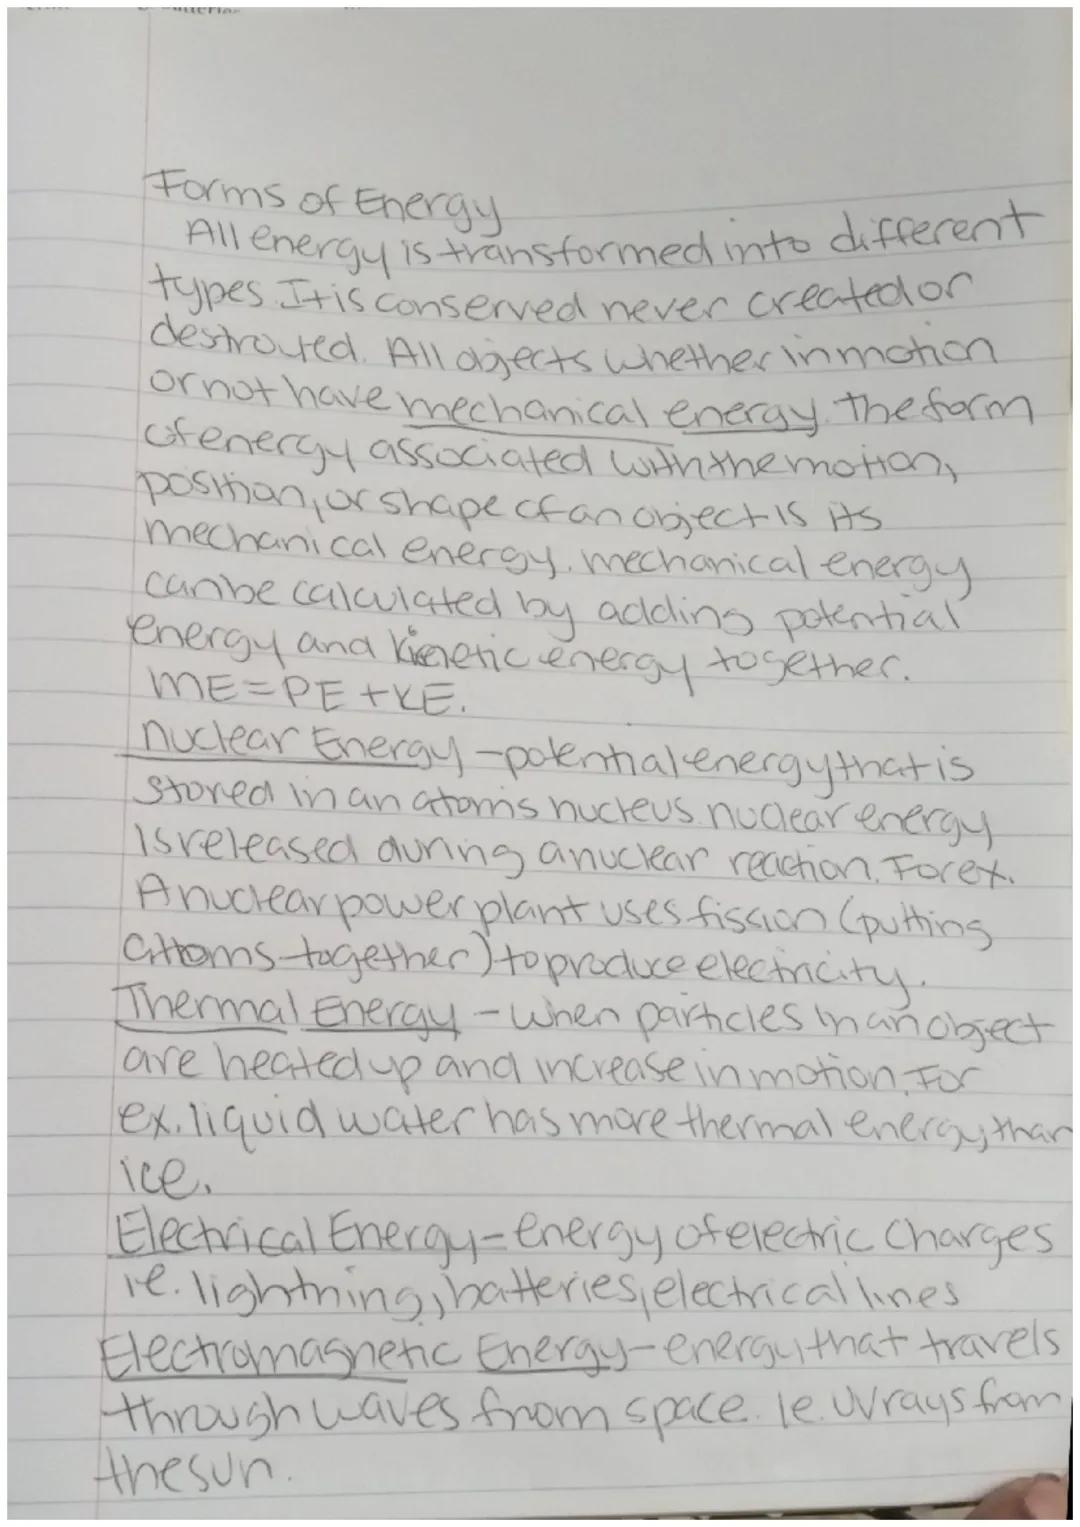 Forms of Energy
All energy is transformed into different
types. It is conserved never created or
destroyed. All objects whether in motion
or not have mechanical energy. the form
of energy associated with the motion,
position, or shape of an object is its
mechanical energy. mechanical energy
can be calculated by adding potential
energy and kinetic energy together.
ME=PE+KE.
nuclear Energy-potential energy that is
stored in an atoms nucleus. nuclear energy
is released during a nuclear reaction. For ex.
A nuclear power plant uses fission (putting
atoms together) to produce electricity.
Thermal Energy - when particles in an object
are heated up and increase in motion. For
ex. liquid water has more thermal energy than
ice.
Electrical Energy-energy of electric charges
ie. lightning, batteries, electrical lines
Electromagnetic Energy-energy that travels
through waves from space. ie. UV rays from
the sun.